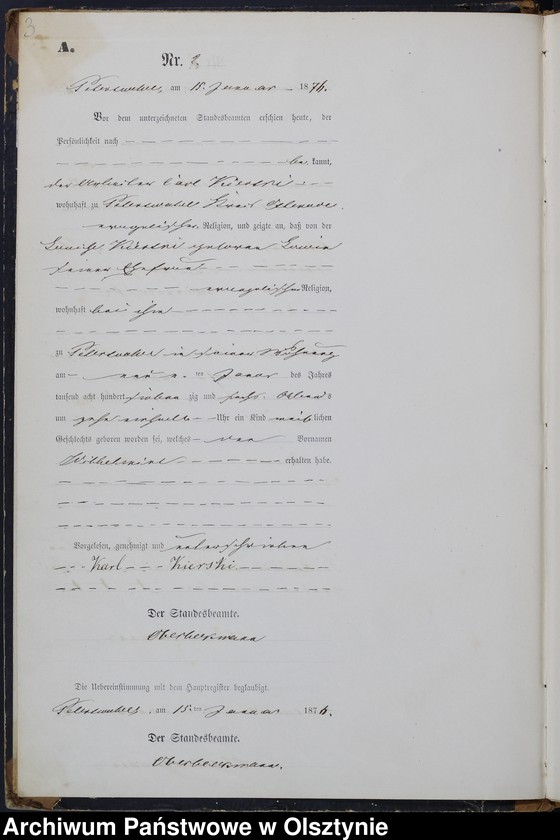 3
A.
Nr.
am 15. Januar 1876.
Vor dem unterzeichneten Standesbeamten erschien heute, der
Persönlichkeit nach
be kannt,
der Arbeiter Carl Kierski
wohnhaft zu Kreis Osterode
evangelischer Religion, und zeigte an, daß von der
Kierski geborene
seiner Ehefrau
evangelischer Religion,
wohnhaft bei ihm
zu in seiner Wohnung
am ten Januar des Jahres
tausend acht hundert sieben zig und sechs
um Uhr ein Kind weib lichen
Geschlechts geboren worden sei, welches den Vornamen
Wilhelmine erhalten habe.
Vorgelesen, genehmigt und unterschrieben
Karl Kierski
Der Standesbeamte.
Oberbeckmann
Die Uebereinstimmung mit dem Hauptregister beglaubigt.
am 15. ten Januar 1876.
Der Standesbeamte.
Oberbeckmann.
Archiwum Państwowe w Olsztynie